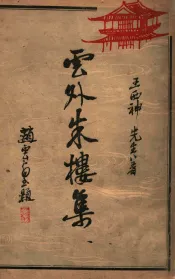 王西神先生著
雲外朱樓集
趙
題